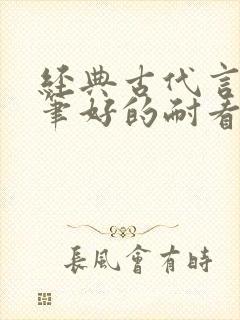 經典古代言
筆好的耐看
長風會有時